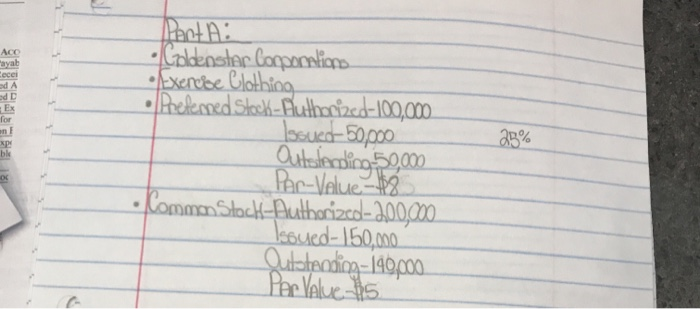 Part A:
• Goldenstar Corporations
• Exercise Clothing
• Preferred Stock-Authorized-100,000
Issued-50,000
25%
Outstanding-50,000
Par-Value-$8
• Common Stock-Authorized-200,000
Issued-150,000
Outstanding-140,000
Par Value-$5